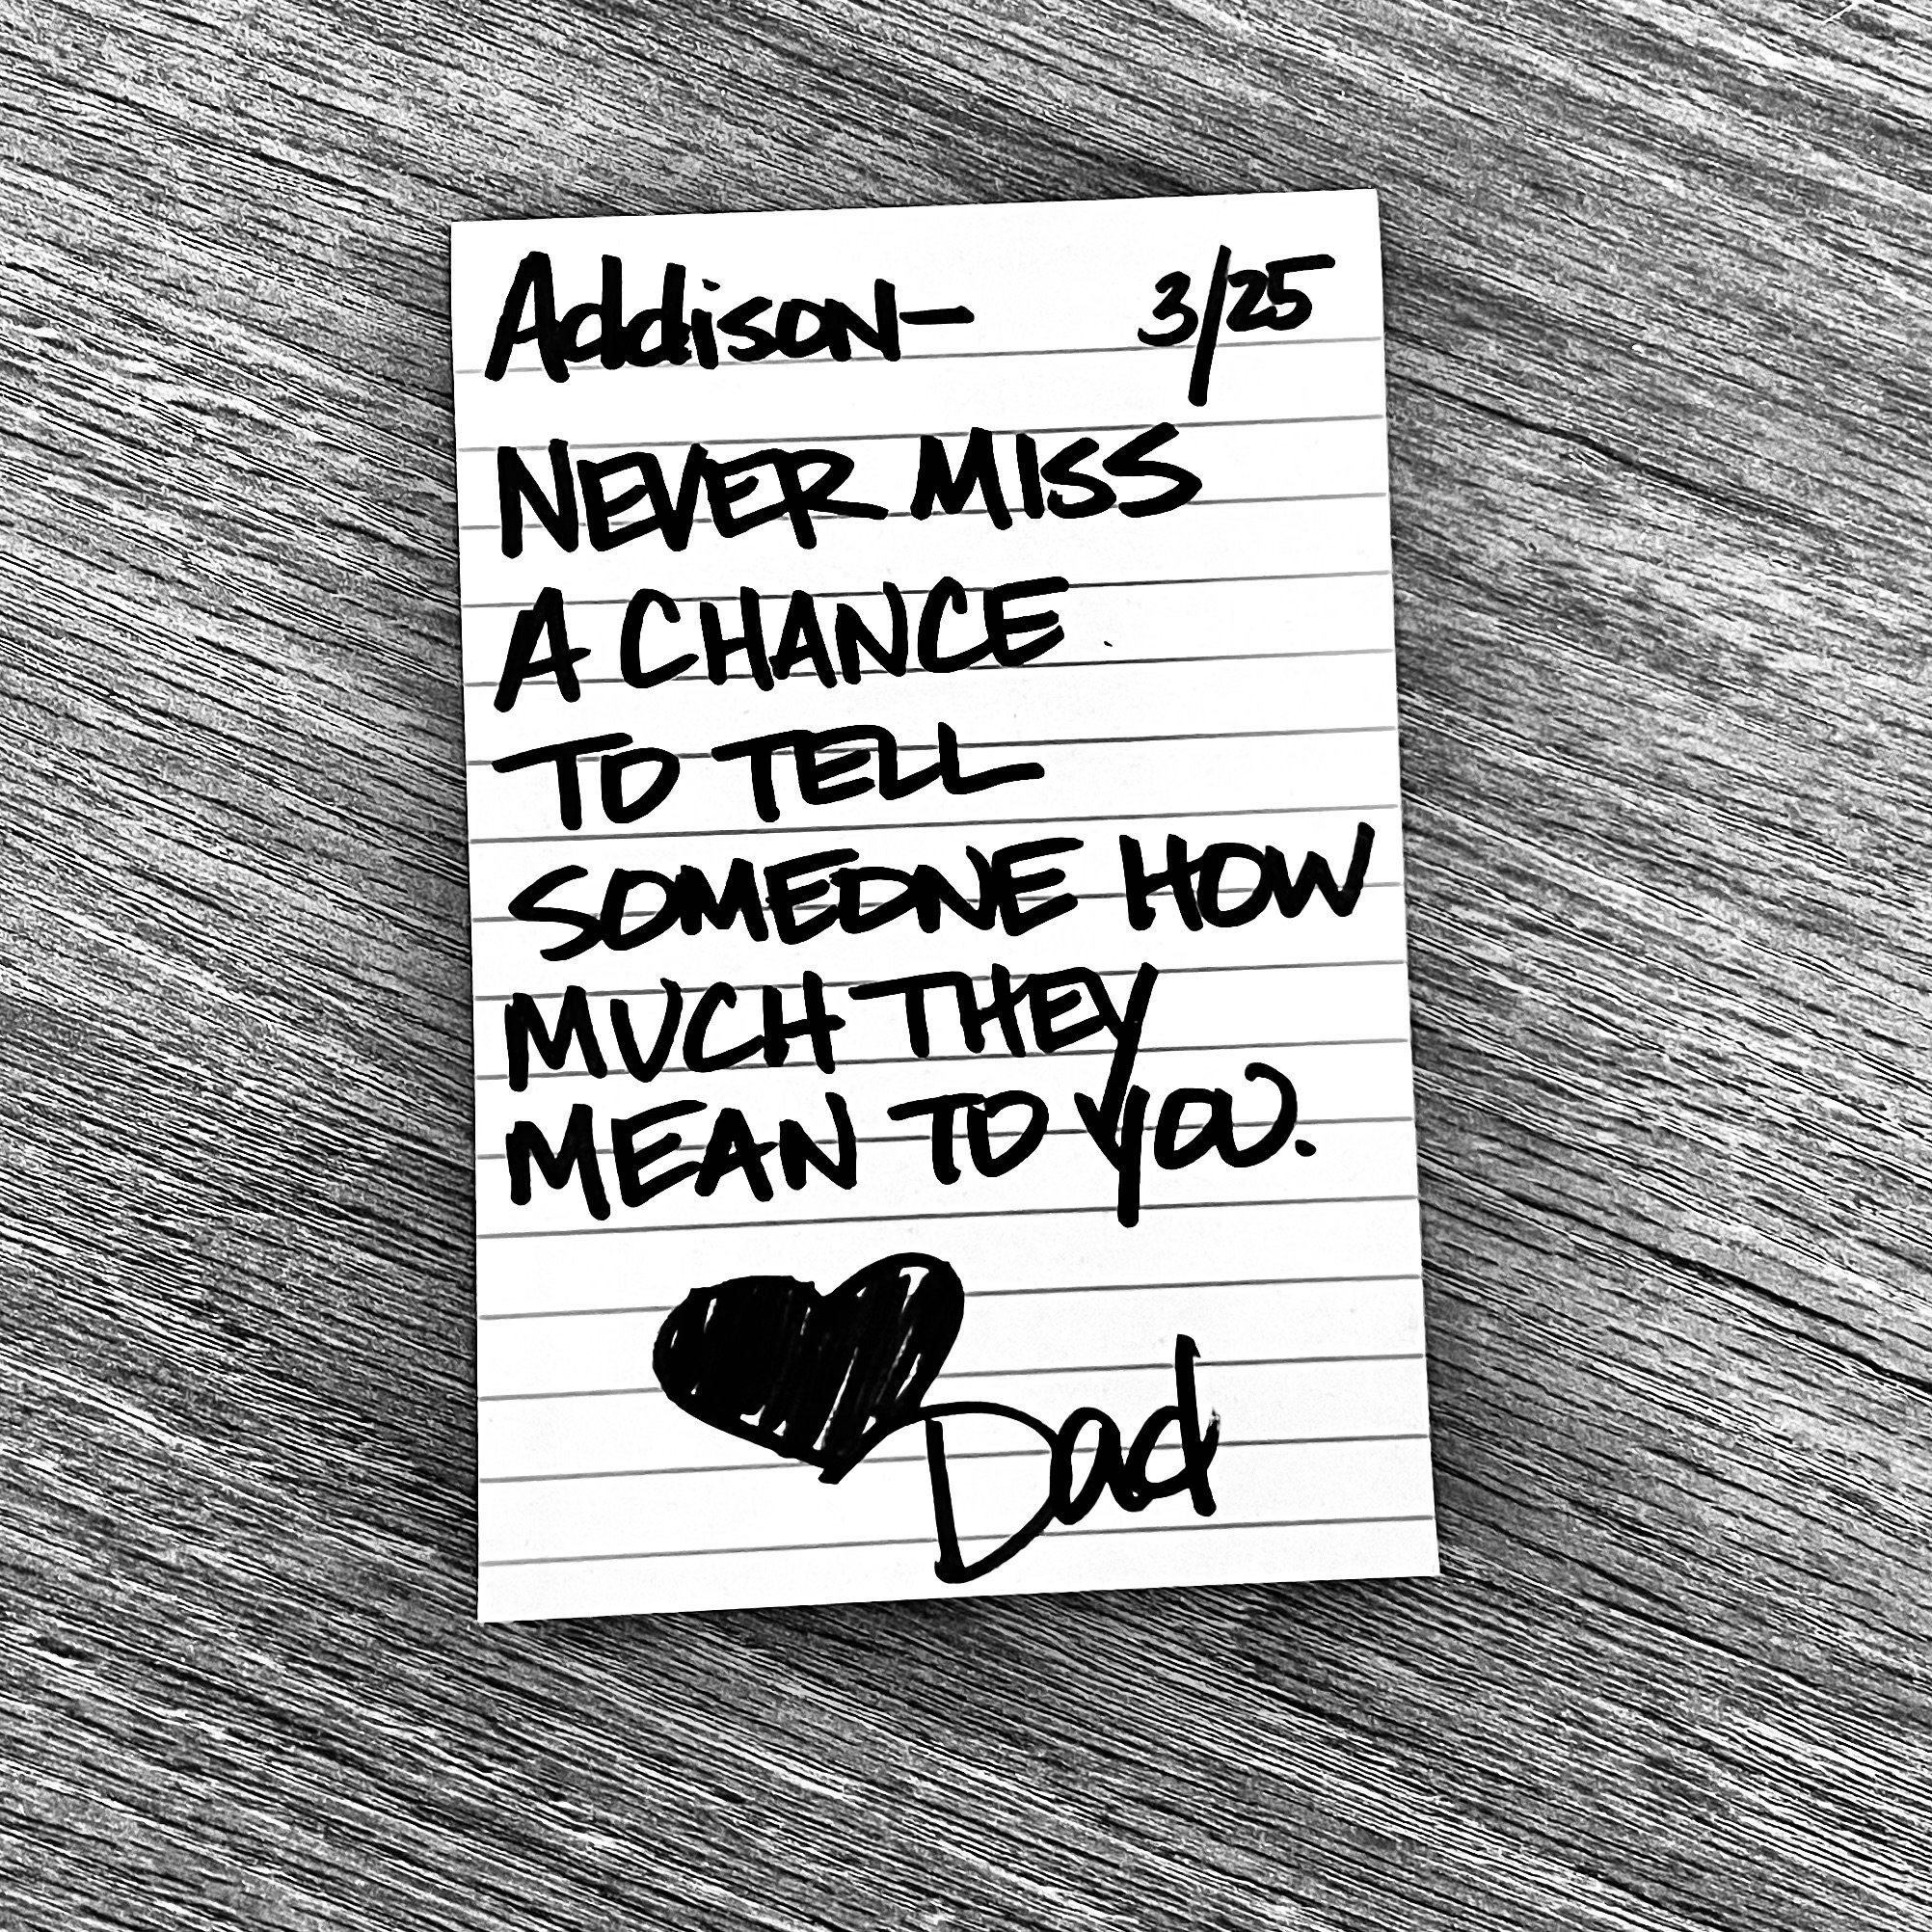 Addison— 3/25
NEVER MISS
A CHANCE
TO TELL
SOMEONE HOW
MUCH THEY
MEAN TO YOU.
Dad